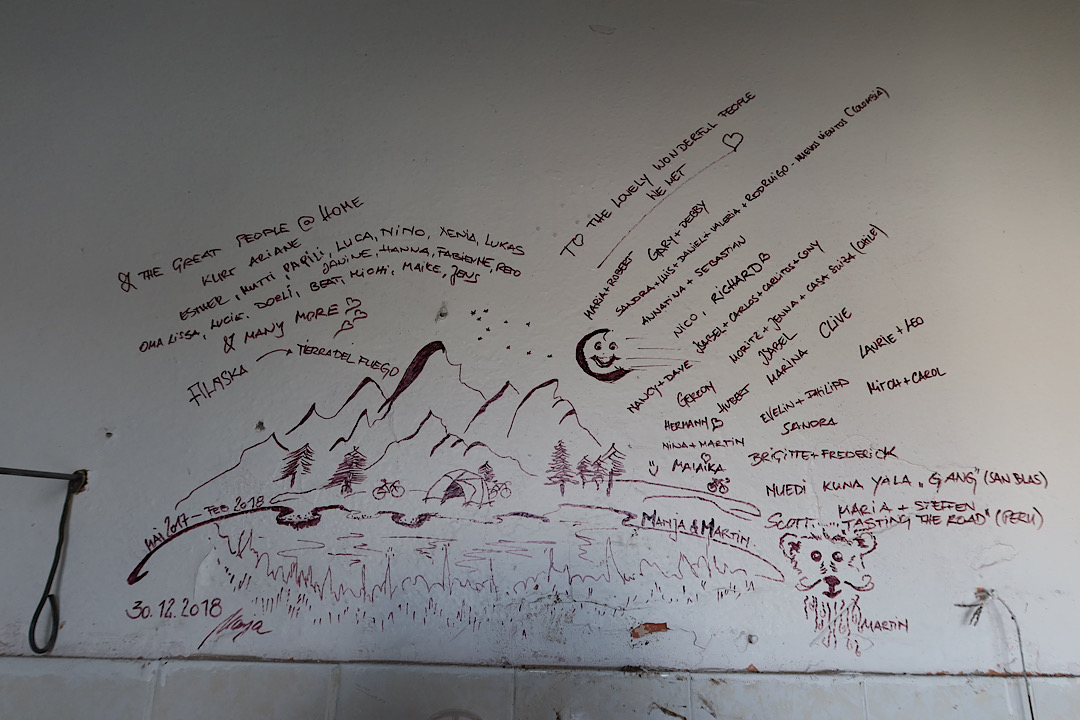 & THE GREAT PEOPLE @ HOME
KURT ARIANE
ESTHER, MUTTI, PAPILI, LUCA, NINO, XENIA, LUKAS
OMA LISSA, LUCIE, DORLI, JANINE, HANNA, FABIENNE, RETO
BEAT, MICHI, MAIKE, JENS
& MANY MORE
ALASKA → TIERRA DEL FUEGO
TO THE LOVELY WONDERFUL PEOPLE
WE MET
MARIA + ROBERT GARY + DEBBY
SANDRA + LUIS + DANIEL + VALERIA + RODRUIGO - NUEVOS VIENTOS (COLOMBIA)
ANNATINA + SEBASTIAN
NICO, RICHARD
NANCY + DAVE ISABEL + CARLOS + CARLITOS + CONY
MORITZ + JENNA + CASA SUIZA (CHILE)
GERCON ISABEL
HUBERT MARINA CLIVE
HERMANN LAURIE + LEO
NINA + MARTIN EVELIN + PHILIPP MITCH + CAROL
MALAIKA SANDRA
BRIGITTE + FREDERICK
NUEDI KUNA YALA „GANG" (SAN BLAS)
MARIA + STEFFEN
SCOTT .... "TASTING THE ROAD" (PERU)
MAI 2017 - FEB 2018
MANJA & MARTIN
30.12.2018
Manja
MARTIN